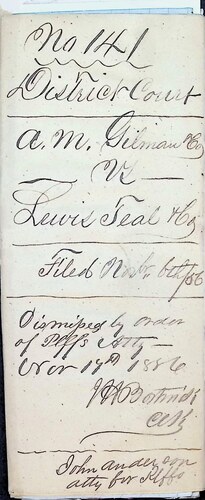 No 141
District Court
A. M. Gilman & Co
Vs
Lewis Teal & Co
Filed Novbr 6th
Dismissed by order
of Plffs Atty
Nov 17th
Clk
John Anderson
atty for Plffs